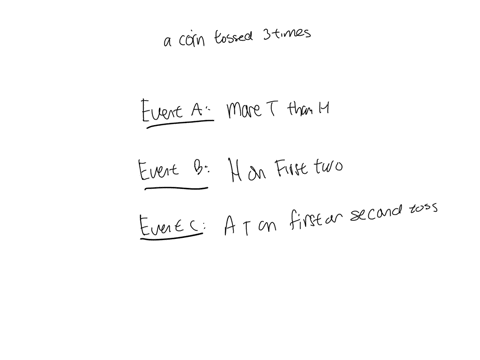 a coin tossed 3 times
Event A: More T than H
Event B: H on First two
Event C: A T on first or second toss